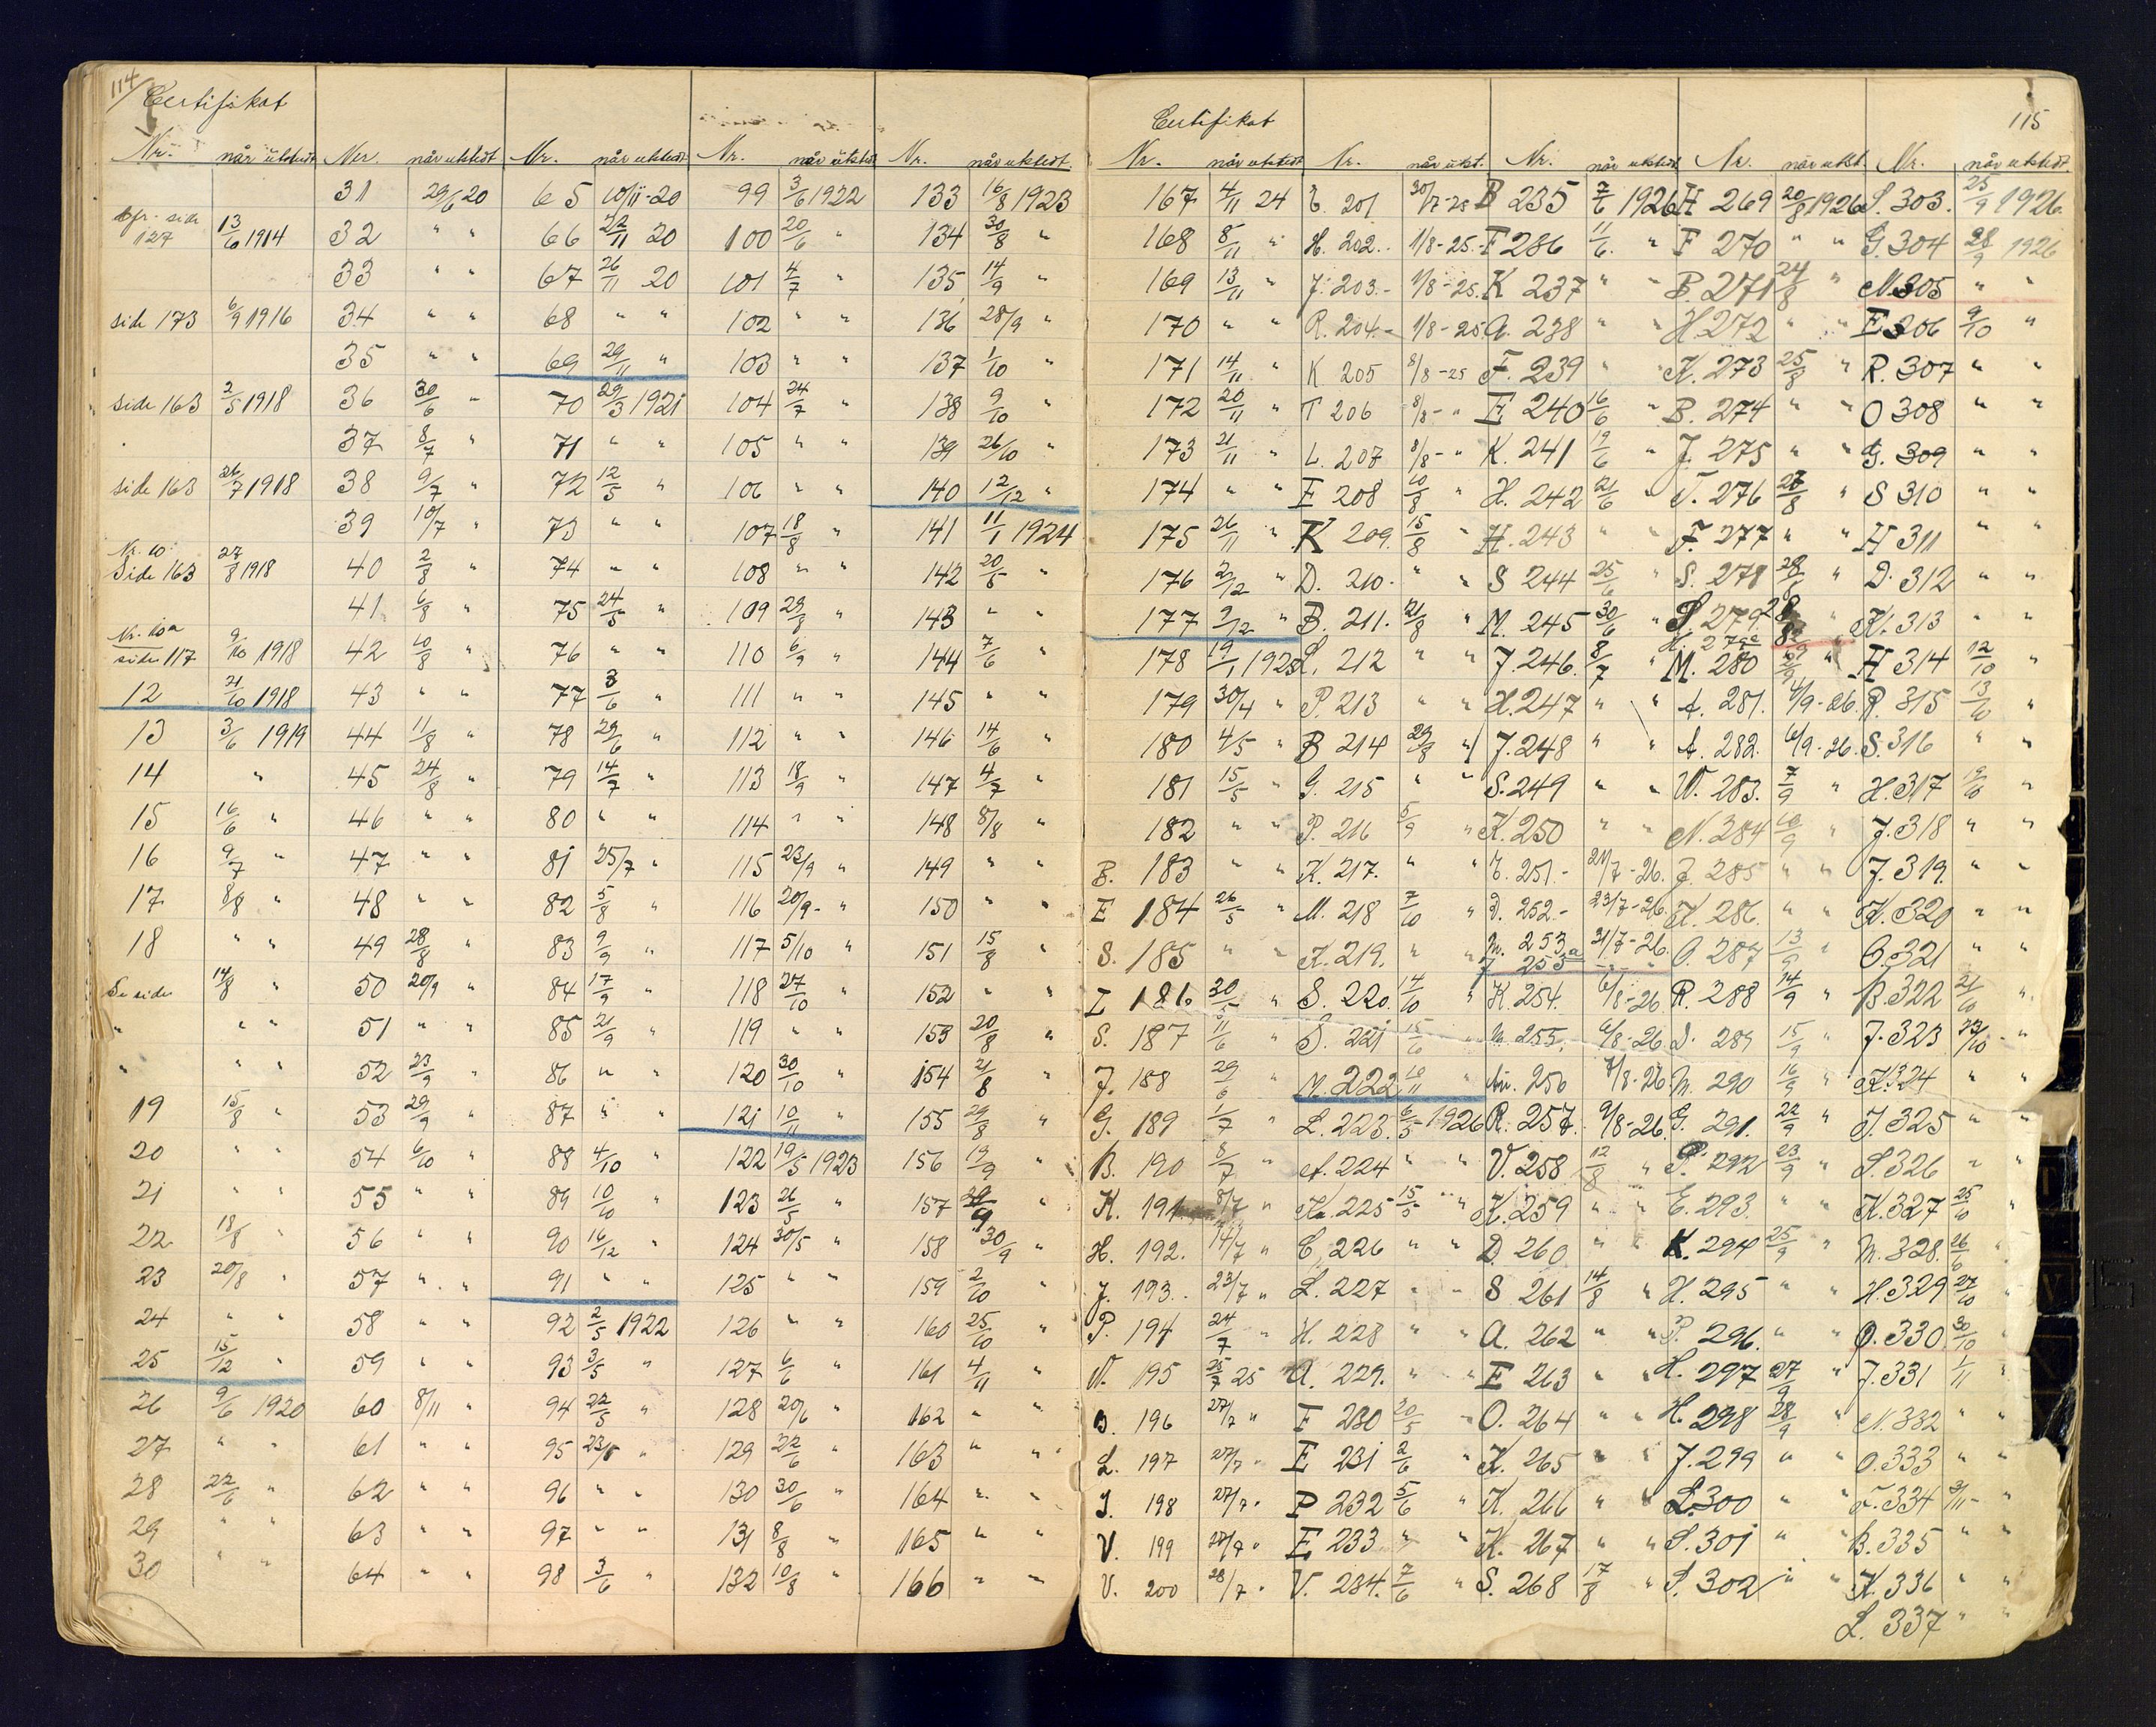 114
Certifikat
Nr. når utstedt
cfr. side 127 13/6 1914
side 173 6/9 1916
side 163 2/5 1918
side 163 26/7 1918
Nr. 10
Side 163 27/8 1918
Nr. 10a
side 117 9/10 1918
12 21/10 1918
13 3/6 1919
14 "
15 16/6 "
16 9/7 "
17 8/8 "
18 " "
Se side 14/8 "
" " "
" " "
19 15/8 "
20 " "
21 " "
22 18/8 "
23 20/8 "
24 " "
25 15/12 "
26 9/6 1920
27 " "
28 22/6 "
29 " "
30 " "
Ner. når utstedt
31 29/6 20
32 " "
33 " "
34 " "
35 " "
36 30/6 "
37 8/7 "
38 9/7 "
39 10/7 "
40 2/8 "
41 6/8 "
42 10/8 "
43 " "
44 11/8 "
45 24/8 "
46 " "
47 " "
48 " "
49 28/8 "
50 20/9 "
51 " "
52 23/9 "
53 29/9 "
54 6/10 "
55 " "
56 " "
57 " "
58 " "
59 " "
60 8/11 "
61 " "
62 " "
63 " "
64 " "
Nr. når utstedt
65 10/11-20
66 22/11 20
67 26/11 20
68 " "
69 29/11 "
70 29/3 1921
71 " "
72 12/5 "
73 " "
74 " "
75 24/5 "
76 " "
77 3/6 "
78 29/6 "
79 14/7 "
80 " "
81 25/7 "
82 5/8 "
83 9/9 "
84 17/9 "
85 21/9 "
86 " "
87 " "
88 4/10 "
89 10/10 "
90 16/12 "
91 " "
92 2/5 1922
93 3/5 "
94 22/5 "
95 23/5 "
96 " "
97 " "
98 3/6 "
Nr. når utstedt
99 3/6 1922
100 20/6 "
101 4/7 "
102 " "
103 " "
104 24/7 "
105 " "
106 " "
107 18/8 "
108 " "
109 29/8 "
110 6/9 "
111 " "
112 " "
113 18/9 "
114 " "
115 23/9 "
116 20/9 - "
117 5/10 "
118 27/10 "
119 " "
120 30/10 "
121 10/11 "
122 19/5 1923
123 26/5 "
124 30/5 "
125 " "
126 " "
127 6/6 "
128 20/6 "
129 22/6 "
130 30/6 "
131 8/8 "
132 10/8 "
Nr. når utstedt.
133 16/8 1923
134 30/8 "
135 14/9 "
136 28/9 "
137 1/10 "
138 9/10 "
139 26/10 "
140 12/12 "
141 11/1 1924
142 20/5 "
143 " "
144 7/6 "
145 " "
146 14/6 "
147 4/7 "
148 8/8 "
149 " "
150 " "
151 15/8 "
152 " "
153 20/8 "
154 21/8 "
155 29/8 "
156 19/9 "
157 29/9 "
158 30/9 "
159 2/10 "
160 25/10 "
161 4/11 "
162 " "
163 " "
164 " "
165 " "
166 " "
115
Certifikat
Nr. når utstedt
167 4/11 24
168 8/11 "
169 13/11 "
170 " "
171 14/11 "
172 20/11 "
173 21/11 "
174 " "
175 26/11 "
176 2/12 "
177 2/12 "
178 19/1 1925
179 30/4 "
180 4/5 "
181 15/5 "
182 " "
B. 183 " "
E 184 26/5 "
S. 185 " "
I 186 30/5 "
S. 187 11/6 "
J. 188 29/6 "
G. 189 1/7 "
B. 190 8/7 "
K. 191 8/7 "
H. 192. 14/7 "
J. 193. 23/7 "
P. 194 24/7 "
N. 195 25/7 25
196 27/7 "
L. 197 27/7 "
J. 198 27/7 "
V. 199 28/7 "
V. 200 28/7 "
Nr. når utst.
201 30/7-25
H. 202. 1/8-25.
J. 203.- 1/8-25.
R. 204.- 1/8-25
K 205 8/8-25
T 206 8/8- "
L. 207 8/8- "
E 208 10/8 "
K 209. 15/8 "
D. 210. " "
B. 211. 21/8 "
L. 212 " "
P. 213 " "
B 214 29/8 "
G. 215 " "
P. 216 5/9 "
K. 217. " "
M. 218 7/10 "
K. 219. " "
S. 220. 14/10 "
S. 221 15/10 "
M. 222 10/11 "
L. 223. 6/5 1926
A. 224 " "
K. 225 15/5 "
C. 226 " "
L. 227 " "
H. 228 " "
A. 229. " "
E 230 20/5 "
E 231 2/6 "
P 232 5/6 "
E 233 " "
V. 234. 7/6 "
Nr. når utstedt
B 235 7/6 1926
F 236 11/6. "
K 237 " "
A. 238 " "
F. 239 "
E 240 16/6 "
K. 241 19/6 "
H. 242 21/6 "
H. 243 " "
S 244 25/6 "
M. 245 30/6 "
J. 246. 8/7 "
H. 247 " "
J. 248 " "
S. 249 " "
K. 250 " "
251.- 21/7-26.
D. 252.- 23/7-26.
M. 253 31/7-26.
J 253a
K 254. 6/8-26
255. 6/8-26
256 7/8-26.
R. 257. 9/8-26.
V. 258 12/8 "
K. 259 " "
D. 260 " "
S 261 14/8 "
A. 262 " "
E 263 " "
O. 264 " "
K. 265 " "
K. 266 " "
K. 267 " "
S. 268 17/8 "
Nr. når utst.
H 269 20/8 1926
F 270 " "
B. 271 24/8 "
H. 272 " "
K. 273 25/8 "
B. 274 " "
J. 275 " "
T. 276 26/8 "
F. 277 " "
S. 278 28/8 "
S. 279 28/8 "
M. 280 "
A. 281. 4/9-26.
A. 282. 6/9-26.
W. 283. 7/9 "
N. 284 10/9 "
J. 285 " "
K. 286. " "
O. 287 13/9 "
R. 288 14/9 "
D. 289 15/9 "
M. 290 16/9 "
G. 291. 22/9 "
P. 292 23/9 "
E. 293. " "
K. 294 25/9 "
H. 295 " "
P. 296. " "
H. 297 27/9 "
H. 298 28/9 "
J. 299 " "
L. 300 " "
S. 301 " "
S. 302 " "
Nr. når utstedt.
S. 303. 25/9 1926.
G. 304 28/9 1926
N. 305 " "
E 306 9/10 "
R. 307 " "
O 308 " "
G. 309 " "
S 310 " "
H 311 " "
D. 312 " "
K. 313 " "
H 314 12/10 "
R. 315 13/10 "
S. 316 " "
H. 317 19/10 "
J. 318 " "
J. 319. " "
K. 320 " "
O. 321 " "
B. 322 21/10 "
J. 323 23/10 "
K. 324 " "
J. 325 " "
S. 326 " "
K. 327 25/10
M. 328. 26/10
H. 329 27/10
O. 330. 30/10
J. 331 1/11 "
N. 332 " "
O. 333 " "
F. 334 2/11- "
B. 335 " "
K. 336 " "
L. 337 " "